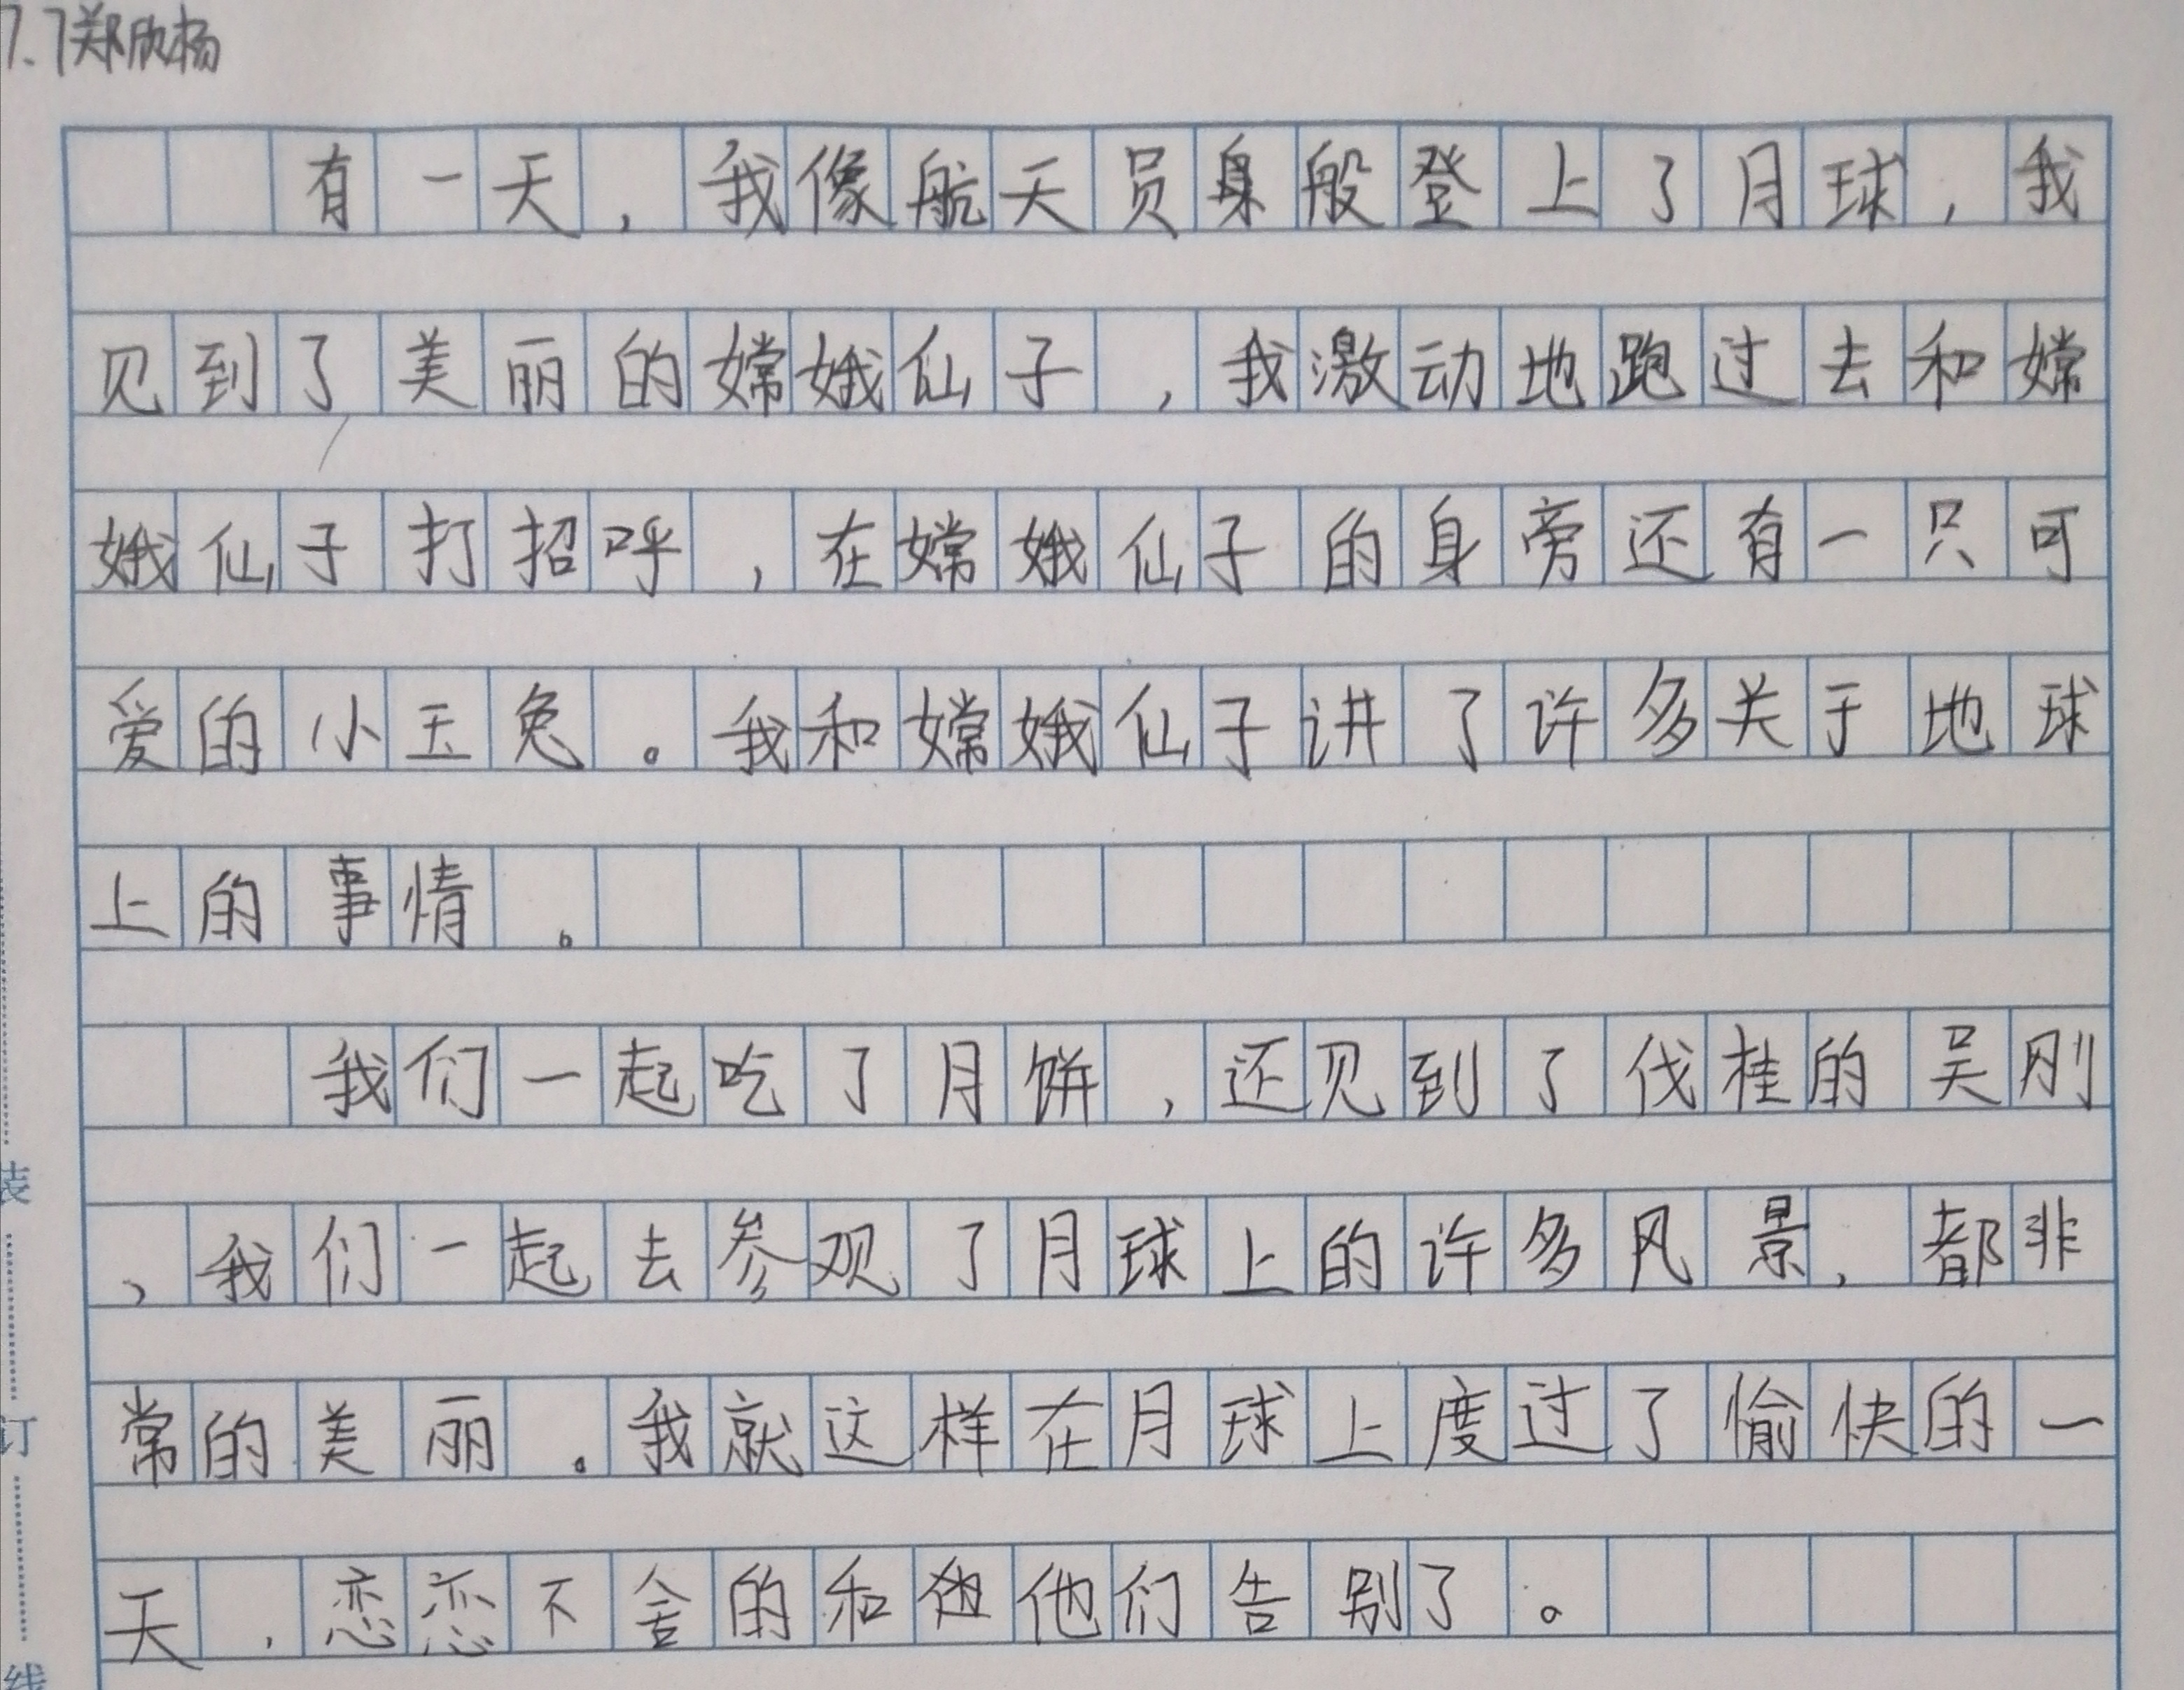 7.7郑欣杨
有一天,我像航天员身般登上了月球,我
见到了美丽的嫦娥仙子,我激动地跑过去和嫦
娥仙子打招呼,在嫦娥仙子的身旁还有一只可
爱的小玉兔。我和嫦娥仙子讲了许多关于地球
上的事情。
我们一起吃了月饼,还见到了伐桂的吴刚
,我们一起去参观了月球上的许多风景,都非
常的美丽。我就这样在月球上度过了愉快的一
天,恋恋不舍的和他们告别了。
装
订
线